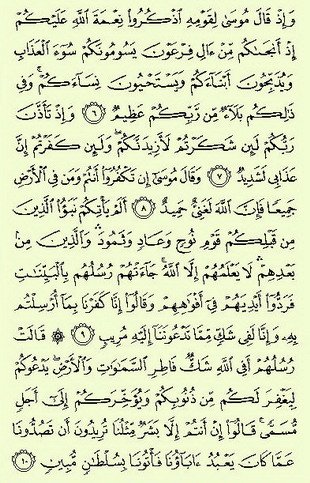 وَإِذْ قَالَ مُوسَىٰ لِقَوْمِهِ ٱذْكُرُوا۟ نِعْمَةَ ٱللَّهِ عَلَيْكُمْ
إِذْ أَنجَىٰكُم مِّنْ ءَالِ فِرْعَوْنَ يَسُومُونَكُمْ سُوٓءَ ٱلْعَذَابِ
وَيُذَبِّحُونَ أَبْنَآءَكُمْ وَيَسْتَحْيُونَ نِسَآءَكُمْ ۚ وَفِى
ذَٰلِكُم بَلَآءٌ مِّن رَّبِّكُمْ عَظِيمٌ ٦ وَإِذْ تَأَذَّنَ
رَبُّكُمْ لَئِن شَكَرْتُمْ لَأَزِيدَنَّكُمْ ۖ وَلَئِن كَفَرْتُمْ إِنَّ
عَذَابِى لَشَدِيدٌ ٧ وَقَالَ مُوسَىٰٓ إِن تَكْفُرُوٓا۟ أَنتُمْ وَمَن فِى ٱلْأَرْضِ
جَمِيعًا فَإِنَّ ٱللَّهَ لَغَنِىٌّ حَمِيدٌ ٨ أَلَمْ يَأْتِكُمْ نَبَؤُا۟ ٱلَّذِينَ
مِن قَبْلِكُمْ قَوْمِ نُوحٍ وَعَادٍ وَثَمُودَ ۛ وَٱلَّذِينَ مِنۢ
بَعْدِهِمْ ۛ لَا يَعْلَمُهُمْ إِلَّا ٱللَّهُ ۚ جَآءَتْهُمْ رُسُلُهُم بِٱلْبَيِّنَٰتِ
فَرَدُّوٓا۟ أَيْدِيَهُمْ فِىٓ أَفْوَٰهِهِمْ وَقَالُوٓا۟ إِنَّا كَفَرْنَا بِمَآ أُرْسِلْتُم
بِهِۦ وَإِنَّا لَفِى شَكٍّ مِّمَّا تَدْعُونَنَآ إِلَيْهِ مُرِيبٍ ٩ ۞ قَالَتْ
رُسُلُهُمْ أَفِى ٱللَّهِ شَكٌّ فَاطِرِ ٱلسَّمَٰوَٰتِ وَٱلْأَرْضِ ۖ يَدْعُوكُمْ
لِيَغْفِرَ لَكُم مِّن ذُنُوبِكُمْ وَيُؤَخِّرَكُمْ إِلَىٰٓ أَجَلٍ
مُّسَمًّى ۚ قَالُوٓا۟ إِنْ أَنتُمْ إِلَّا بَشَرٌ مِّثْلُنَا تُرِيدُونَ أَن تَصُدُّونَا
عَمَّا كَانَ يَعْبُدُ ءَابَآؤُنَا فَأْتُونَا بِسُلْطَٰنٍ مُّبِينٍ ١٠